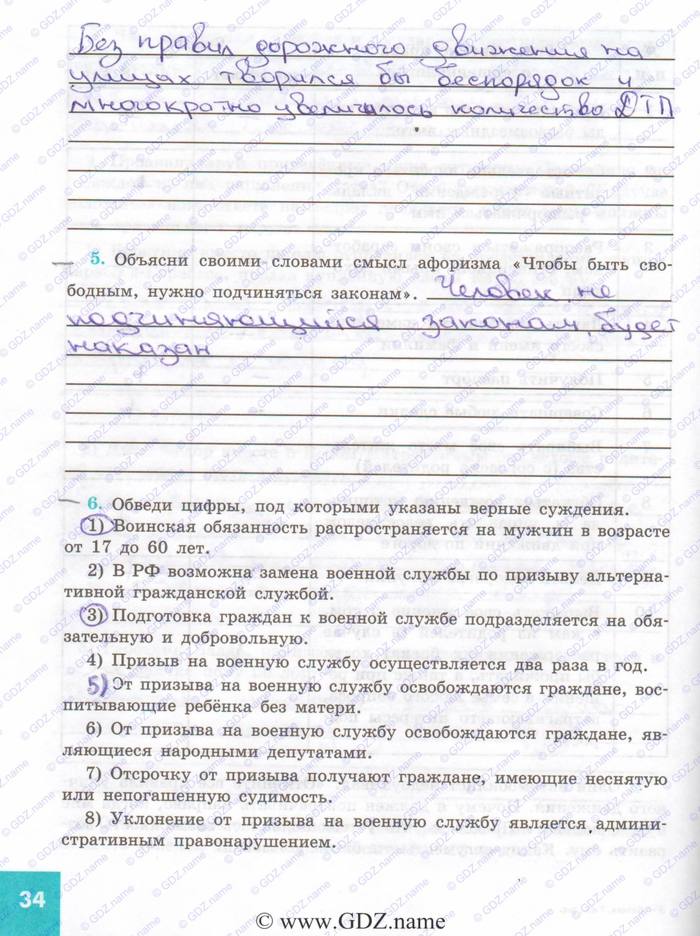 Без правил дорожного движения на
улицах творился бы беспорядок и
многократно увеличилось количество ДТП
5. Объясни своими словами смысл афоризма «Чтобы быть сво-
бодным, нужно подчиняться законам». Человек не
подчиняющийся законам будет
наказан
6. Обведи цифры, под которыми указаны верные суждения.
1) Воинская обязанность распространяется на мужчин в возрасте
от 17 до 60 лет.
2) В РФ возможна замена военной службы по призыву альтерна-
тивной гражданской службой.
3) Подготовка граждан к военной службе подразделяется на обя-
зательную и добровольную.
4) Призыв на военную службу осуществляется два раза в год.
5) От призыва на военную службу освобождаются граждане, вос-
питывающие ребёнка без матери.
6) От призыва на военную службу освобождаются граждане, яв-
ляющиеся народными депутатами.
7) Отсрочку от призыва получают граждане, имеющие неснятую
или непогашенную судимость.
8) Уклонение от призыва на военную службу является админи-
стративным правонарушением.
34
© www.GDZ.name